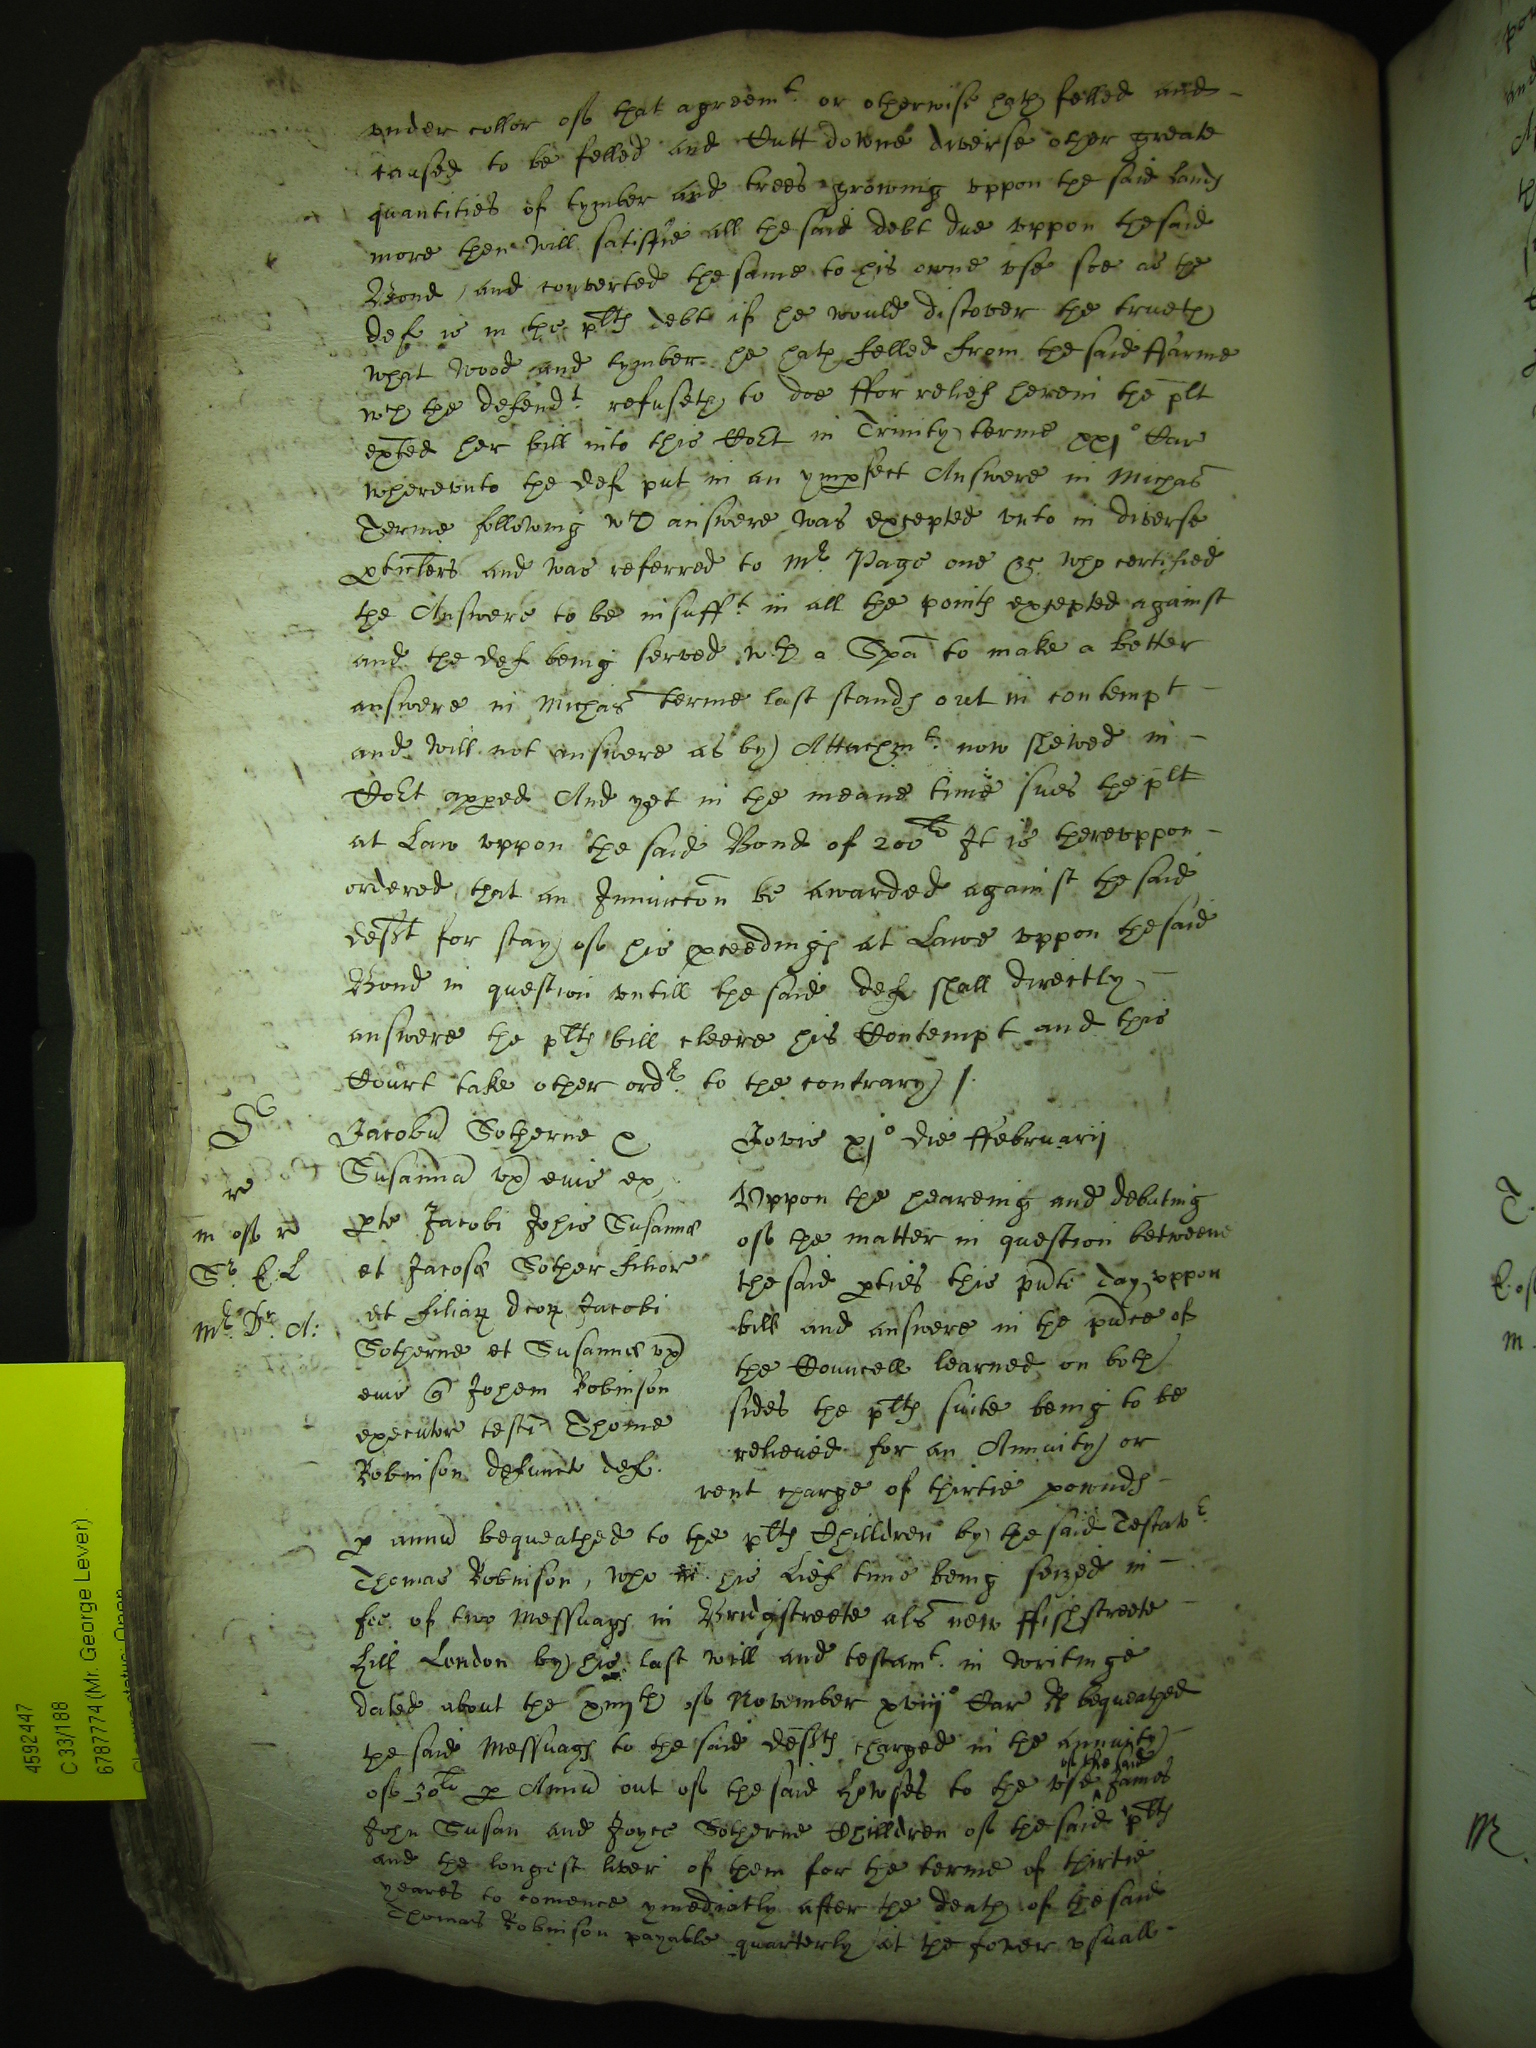 vnder collor of that agreemt. or otherwise hath felled and
caused to be felled and Cutt downe diverse other greate
quantities of tymber and trees growing vppon the said Lands
more then will satisfie all the said debt due vppon the said
Bond, and converted the same to his owne vse soe as the
def is in the plts debt if he would discover the trueth
what wood and tymber he hath felled from the said ffarme
wch the defendt. refuseth to doe ffor relief herein the plt
exhted her bill into this Cort in Trinity terme xxjo Car
wherevnto the def put in an ymperfect Answere in Michas
Terme following wch answere was excepted vnto in diverse
pticlers and was referred to Mr. Page one &c. who certified
the Answere to be insufft. in all the points excepted against
and the def being served wth a Spa to make a better
answere in Michas terme last stands out in contempt
and will not answere as by Attachmt. now shewed in
Cort apped And yet in the meane time sues the plt
at Law vppon the said Bond of 200li It is therevppon
ordered that an Iniuncton be awarded against the said
deft for stay of his pceedings at Lawe vppon the said
Bond in question vntill the said def shall directly
answere the plts bill cleere his Contempt and this
Court take other ordr. to the contrary /.
Jacobu Sotherne &
Susanna vx eius ex
pte Jacobi Johis Susanne
et Jacose Sother filior
et filiar dcor Jacobi
Sotherne et Susanne vx
eius Johem Robinson
executor testi Thome
Robinson defunct def.
re
m of re
Sr. E: L
Mr. Dr. A:
Jovis xjo die ffebruarij
Vppon the heareing and debating
of the matter in question betweene
the said pties this pnte day vppon
bill and answere in the pnce of
the Councell learned on both
sides the plts suite being to be
relieved for an Annuity or
rent charge of thirtie pownds
p annu bequeathed to the plts Chilldren by the said Testatr.
Thomas Robinson, who in his lief time being seized in
fee of two Messuags in Bridgstreete als new ffishstreete
hill London by his last will and testamt. in writinge
dated about the xiiijth of November xviijo Car R bequeathed
the said Messuags to the said defts charged in the annuity
of 30li p Annu out of the said howses to the vse of the said James
John Susan and Joyce Sotherne Chilldren of the said plts
and the longest liver of them for the terme of thirtie
yeares to comence ymediatly after the death of the said
Thomas Robinson payable quarterly at the fower vsuall
4592447
C 33/188
6787774 (Mr. George Lever)